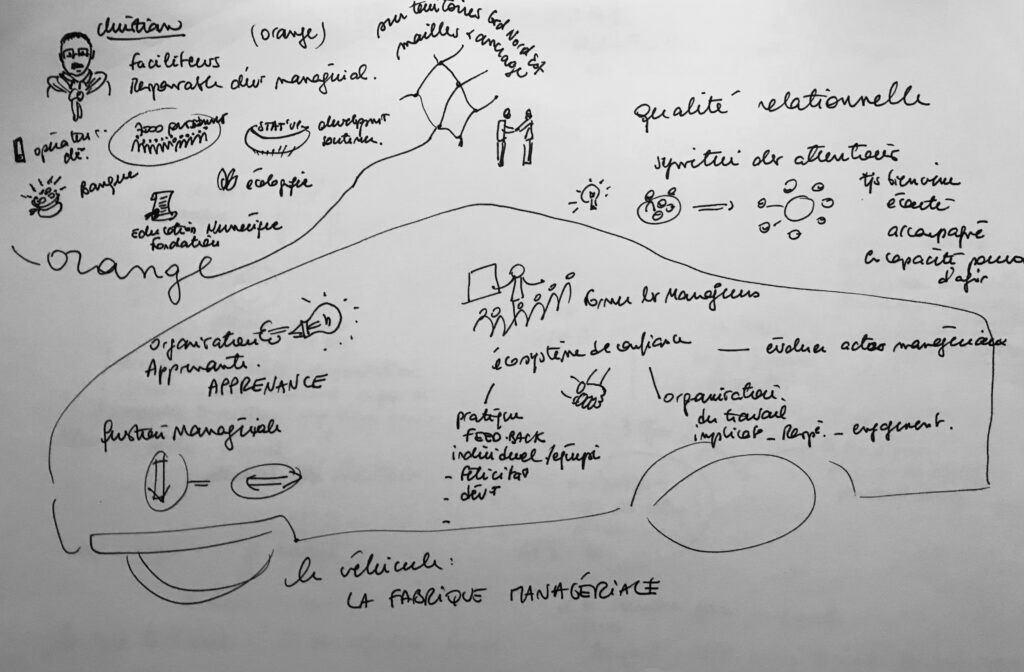 christian
(orange)
faciliteurs
Responsable dévt managérial.
sur territoires Grd Nord Est
mailles + ancrage
opérateur
7000 personnes
STAT'UP
développmt
soutenu.
Banque
écologie
Education Numérique
Fondation
orange
qualité relationnelle
symétrie des attentions
tjs bienvenu
écouté
accompagné
en capacité
d'agir
former les Managers
organisation
Apprenante.
APPRENANCE
écosystème de confiance
évaluer actes managériaux
pratique
FEED-BACK
individuel/équipe
- félicitat°
- dévt
-
organisation
du travail
implicat° - Resp. - engagement.
Managériale
le véhicule:
LA FABRIQUE MANAGÉRIALE